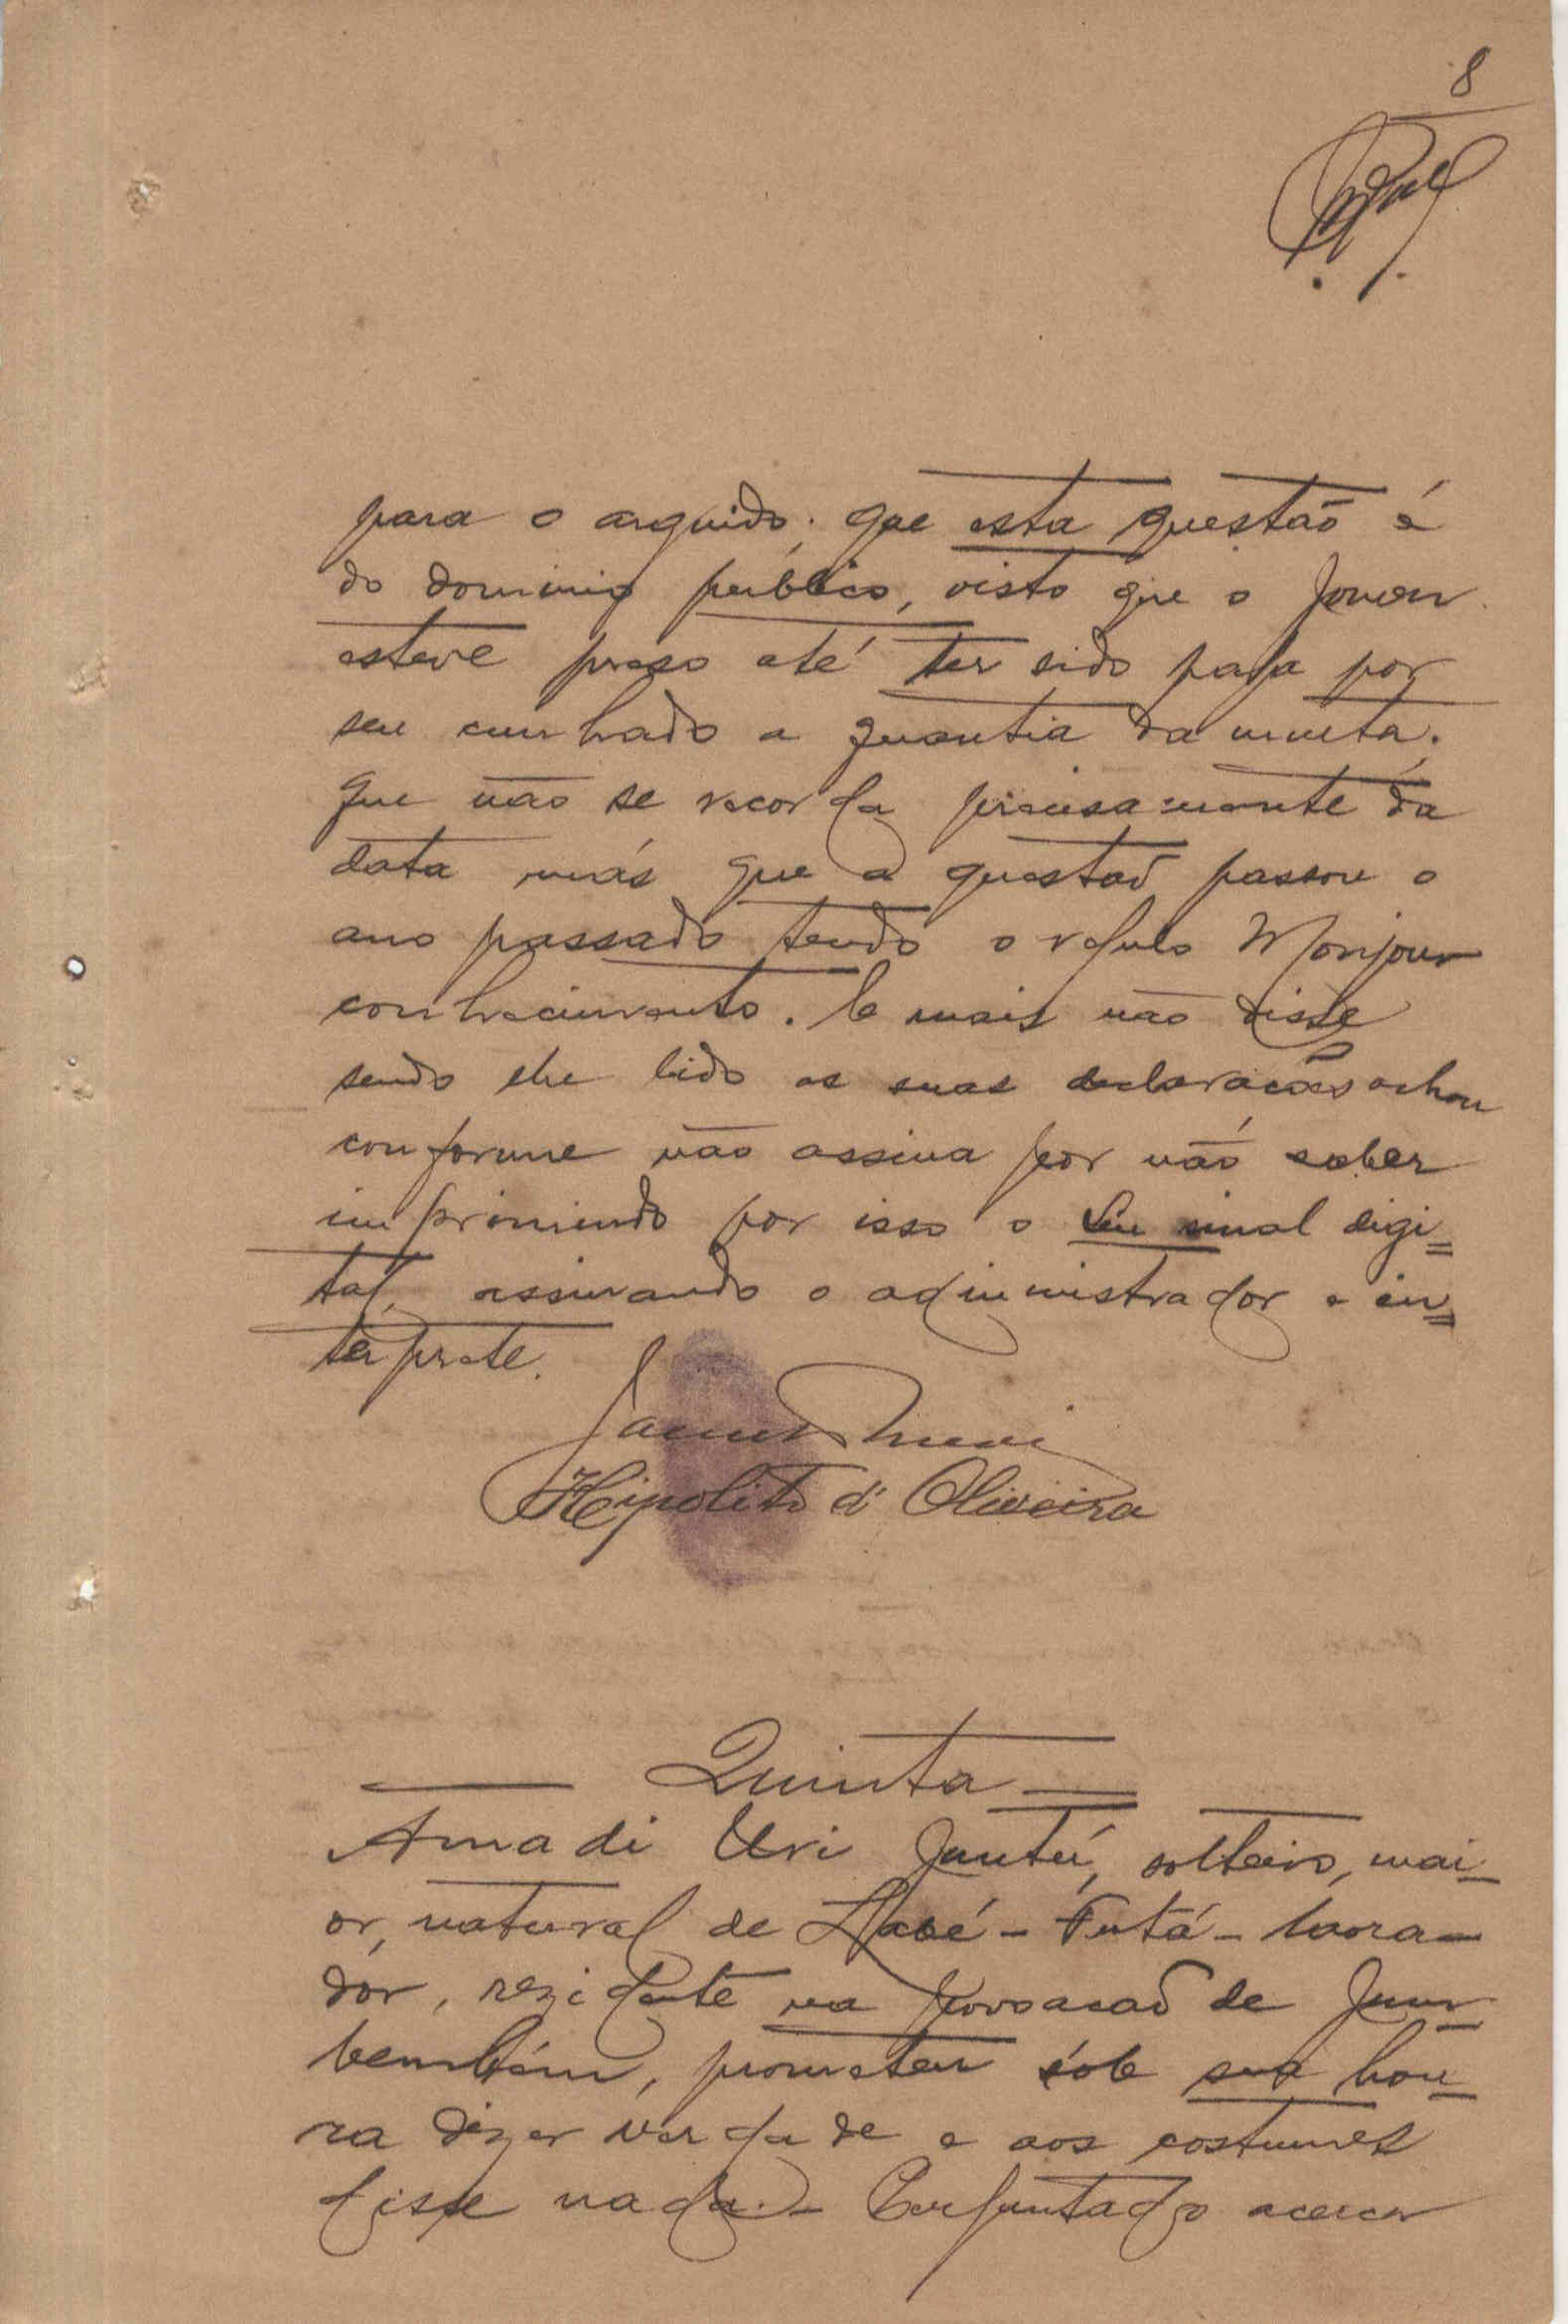 8
para o arguido; que esta questão é
do dominio publico, visto que o Joven
esteve preso até ter sido paga por
seu cunhado a quantia da multa.
que não se recorda precisamente da
data más que a questaõ passou o
ano passado tendo o regulo Monjour
conhecimento. E mais não disse
sendo lhe lido as suas declarações achou
conforme não assina por não saber
imprimindo por isso o seu sinal digi=
tal, assinando o administrador e in=
terprete.
Hipolito d'Oliveira
Quinta
Amadi Uri Jantú, solteiro, mai-
or, natural de Labé - Futá - lavra-
dor, rezidente na povoacaõ de Jum-
bembém, prometeu sób sua hon-
ra dizer verdade e aos costumes
disse nada. - Perguntado acerca